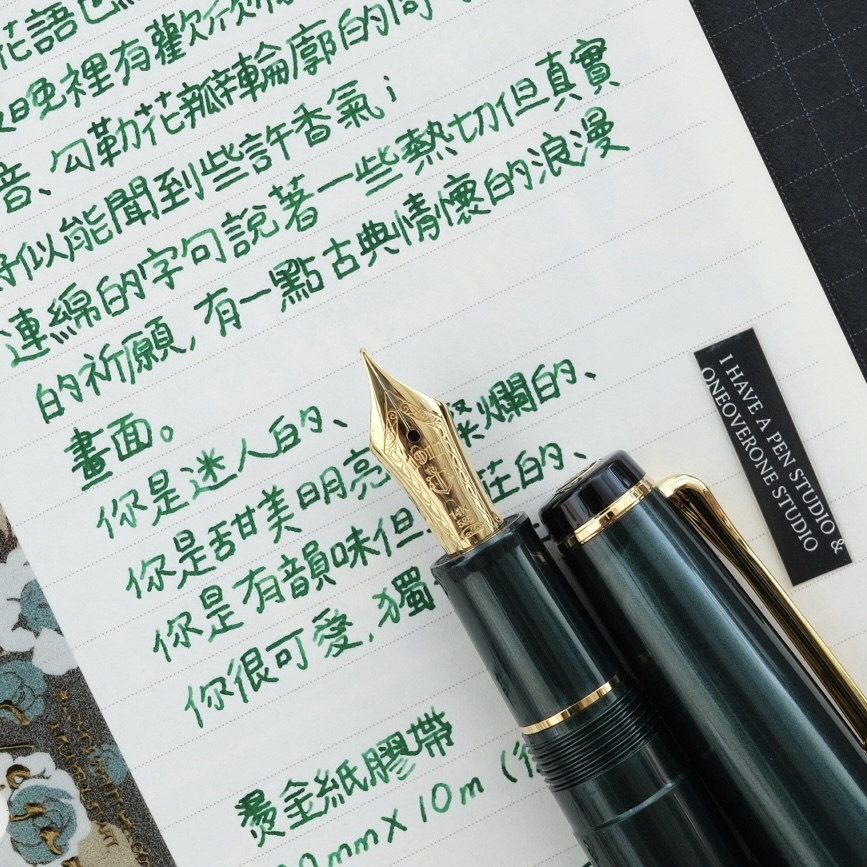 花語也
晚裡有歡欣
音、勾勒花瓣輪廓的同
好似能聞到些許香氣；
連綿的字句說著一些熱切但真實
的祈願，有一點古典情懷的浪漫
畫面。
你是迷人的、 燦爛的、
你是甜美明亮 的、
你是有韻味但
你很可愛，獨
燙金紙膠帶
mm x 10m (
I HAVE A PEN STUDIO &
ONEOVERONE STUDIO